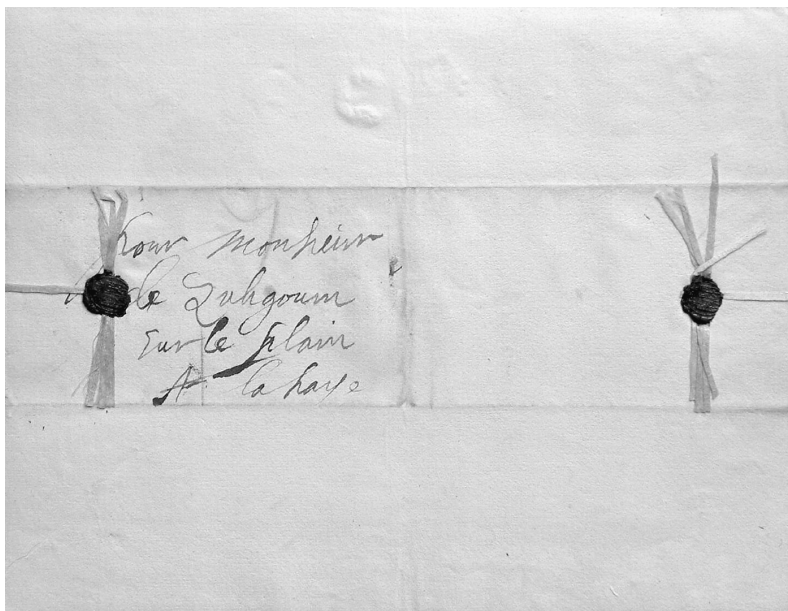 Pour monsieur
de Zulijgoum
sur le plain
A la haije